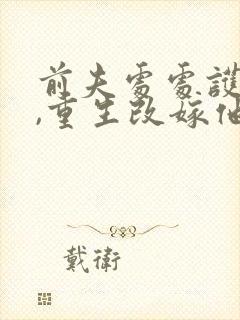 前夫處處護
,重生改嫁他
戴衛